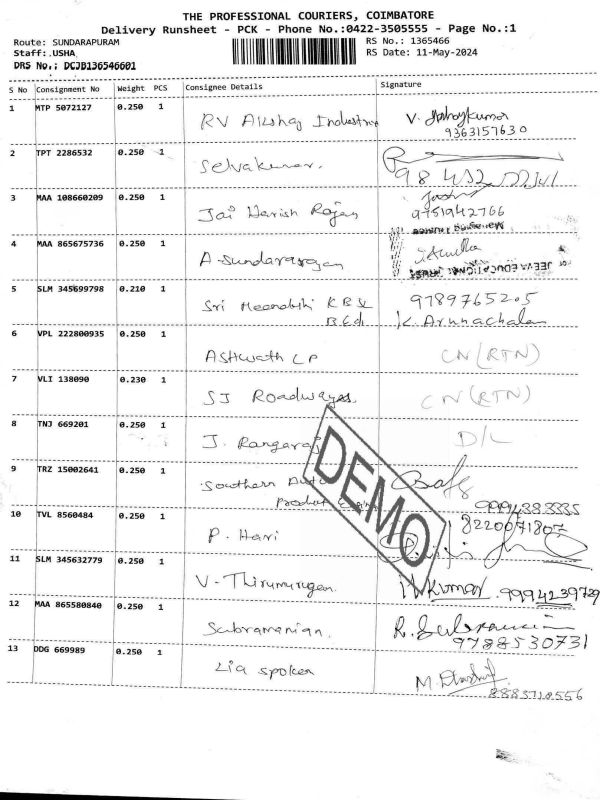 THE PROFESSIONAL COURIERS, COIMBATORE
Delivery Runsheet - PCK - Phone No.:0422-3505555 - Page No.:1
Route: SUNDARAPURAM
RS No.: 1365466
Staff: USHA
RS Date: 11-May-2024
DRS No.: DCJB136546601
S No Consignment No Weight PCS Consignee Details Signature
1 MTP 5072127 0.250 1 RV Akshaj Industries V.
9363157630
2 TPT 2286532 0.250 1 Selvakumar.
3 MAA 108660209 0.250 1 Jai Harish Rajan
9751942766
Managing Trustee
4 MAA 865675736 0.250 1 A-Sundararajan
for JEEVA EDUCATIONAL TRUST
5 SLM 345699798 0.210 1 Sri Meenakshi K B S 9789765205
B.Ed K. Arunachalam
6 VPL 222800935 0.250 1 Ashwath LP CN (RTN)
7 VLI 138090 0.230 1 SJ Roadwayes. CN (RTN)
8 TNJ 669201 0.250 1 J. Rangaraj D/L
9 TRZ 15002641 0.250 1 Southern Auto
Product 9994383335
DEMO
10 TVL 8560484 0.250 1 P. Hari 8220071807
11 SLM 345632779 0.250 1 V-Thirumurugan. Kumar 9994239729
12 MAA 865580840 0.250 1 Subramanian. R. Subramani
9788530731
13 DDG 669989 0.250 1 Lia spoken M.
8883718556